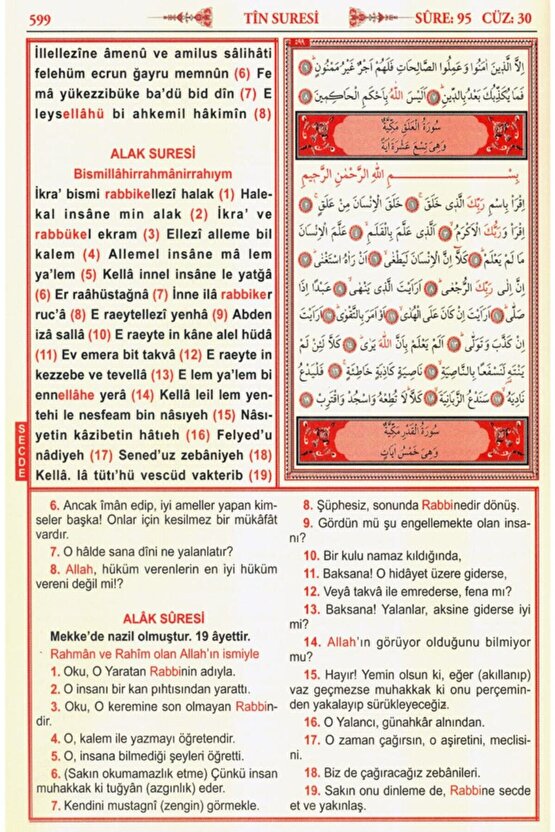 599
TÎN SURESİ
SÛRE: 95 CÜZ: 30
İllellezîne âmenû ve amilus sâlihâti
felehüm ecrun ğayru memnûn (6) Fe
mâ yükezzibüke ba'dü bid dîn (7) E
leysellâhü bi ahkemil hâkimîn (8)
ALAK SURESİ
Bismillâhirrahmânirrahıym
İkra' bismi rabbikellezî halak (1) Hale-
kal insâne min alak (2) İkra' ve
rabbükel ekram (3) Ellezî alleme bil
kalem (4) Allemel insâne mâ lem
ya'lem (5) Kellâ innel insâne le yatğâ
(6) Er raâhüstağnâ (7) İnne ilâ rabbiker
ruc'â (8) E raeytellezî yenhâ (9) Abden
izâ sallâ (10) E raeyte in kâne alel hüdâ
(11) Ev emera bit takvâ (12) E raeyte in
kezzebe ve tevellâ (13) E lem ya'lem bi
ennellâhe yerâ (14) Kellâ leil lem yen-
tehi le nesfeam bin nâsıyeh (15) Nâsı-
yetin kâzibetin hâtıeh (16) Felyed'u
nâdiyeh (17) Sened'uz zebâniyeh (18)
Kellâ. lâ tütı'hü vescüd vakterib (19)
SECDE
اِلَّا الَّذٖينَ اٰمَنُوا وَعَمِلُوا الصَّالِحَاتِ فَلَهُمْ اَجْرٌ غَيْرُ مَمْنُونٍ ٦
فَمَا يُكَذِّبُكَ بَعْدُ بِالدّٖينِ ٧ اَلَيْسَ اللّٰهُ بِاَحْكَمِ الْحَاكِمٖينَ ٨
سُورَةُ الْعَلَقِ مَكِّيَّةٌ
وَهِيَ تِسْعَ عَشْرَةَ اٰيَةً
بِسْمِ اللّٰهِ الرَّحْمٰنِ الرَّحٖيمِ
اِقْرَاْ بِاسْمِ رَبِّكَ الَّذٖى خَلَقَ ١ خَلَقَ الْاِنْسَانَ مِنْ عَلَقٍ ٢
اِقْرَاْ وَرَبُّكَ الْاَكْرَمُ ٣ اَلَّذٖى عَلَّمَ بِالْقَلَمِ ٤ عَلَّمَ الْاِنْسَانَ
مَا لَمْ يَعْلَمْ ٥ كَلَّا اِنَّ الْاِنْسَانَ لَيَطْغٰى ٦ اَنْ رَاٰهُ اسْتَغْنٰى ٧
اِنَّ اِلٰى رَبِّكَ الرُّجْعٰى ٨ اَرَاَيْتَ الَّذٖى يَنْهٰى ٩ عَبْدًا اِذَا
صَلّٰى ١٠ اَرَاَيْتَ اِنْ كَانَ عَلَى الْهُدٰى ١١ اَوْ اَمَرَ بِالتَّقْوٰى ١٢ اَرَاَيْتَ
اِنْ كَذَّبَ وَتَوَلّٰى ١٣ اَلَمْ يَعْلَمْ بِاَنَّ اللّٰهَ يَرٰى ١٤ كَلَّا لَئِنْ لَمْ
يَنْتَهِ لَنَسْفَعًا بِالنَّاصِيَةِ ١٥ نَاصِيَةٍ كَاذِبَةٍ خَاطِئَةٍ ١٦ فَلْيَدْعُ
نَادِيَهُ ١٧ سَنَدْعُ الزَّبَانِيَةَ ١٨ كَلَّا لَا تُطِعْهُ وَاسْجُدْ وَاقْتَرِبْ ١٩
سُورَةُ الْقَدْرِ مَكِّيَّةٌ
وَهِيَ خَمْسُ اٰيَاتٍ
6. Ancak îmân edip, iyi ameller yapan kim-
seler başka! Onlar için kesilmez bir mükâfât
vardır.
7. O hâlde sana dîni ne yalanlatır?
8. Allah, hüküm verenlerin en iyi hüküm
vereni değil mi!?
ALÂK SÛRESİ
Mekke'de nazil olmuştur. 19 âyettir.
Rahmân ve Rahîm olan Allah'ın ismiyle
1. Oku, O Yaratan Rabbinin adıyla.
2. O insanı bir kan pıhtısından yarattı.
3. Oku, O keremine son olmayan Rabbin-
dir.
4. O, kalem ile yazmayı öğretendir.
5. O, insana bilmediği şeyleri öğretti.
6. (Sakın okumamazlık etme) Çünkü insan
muhakkak ki tuğyân (azgınlık) eder.
7. Kendini mustagnî (zengin) görmekle.
8. Şüphesiz, sonunda Rabbinedir dönüş.
9. Gördün mü şu engellemekte olan insa-
nı?
10. Bir kulu namaz kıldığında,
11. Baksana! O hidâyet üzere giderse,
12. Veyâ takvâ ile emrederse, fena mı?
13. Baksana! Yalanlar, aksine giderse iyi
mi?
14. Allah'ın görüyor olduğunu bilmiyor
mu?
15. Hayır! Yemin olsun ki, eğer (akıllanıp)
vaz geçmezse muhakkak ki onu perçemin-
den yakalayıp sürükleyeceğiz.
16. O Yalancı, günahkâr alnından.
17. O zaman çağırsın, o aşiretini, meclisi-
ni.
18. Biz de çağıracağız zebânileri.
19. Sakın onu dinleme de, Rabbine secde
et ve yakınlaş.